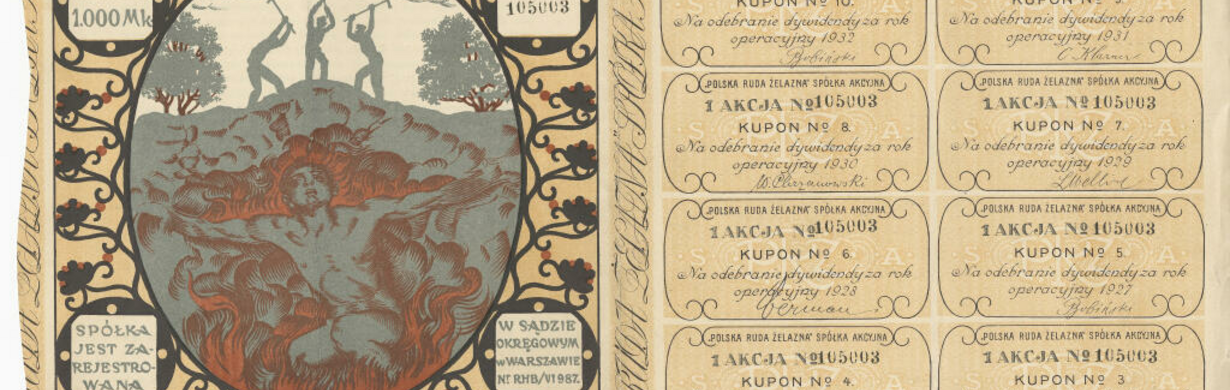 1.000 Mk
105003
SPÓŁKA
JEST ZA-
REJESTRO-
WANA
W SĄDZIE
OKRĘGOWYM
W WARSZAWIE
Nr RHB/VI 987.
KUPON № 10.
Na odebranie dywidendy za rok
operacyjny 1932
Bobiński
KUPON № 9.
Na odebranie dywidendy za rok
operacyjny 1931
C. Klarner
„POLSKA RUDA ŻELAZNA" SPÓŁKA AKCYJNA
1 AKCJA № 105003
KUPON № 8.
Na odebranie dywidendy za rok
operacyjny 1930
„POLSKA RUDA ŻELAZNA" SPÓŁKA AKCYJNA
1 AKCJA № 105003
KUPON № 7.
Na odebranie dywidendy za rok
operacyjny 1929
„POLSKA RUDA ŻELAZNA" SPÓŁKA AKCYJNA
1 AKCJA № 105003
KUPON № 6.
Na odebranie dywidendy za rok
operacyjny 1928
„POLSKA RUDA ŻELAZNA" SPÓŁKA AKCYJNA
1 AKCJA № 105003
KUPON № 5.
Na odebranie dywidendy za rok
operacyjny 1927
Bobiński
„POLSKA RUDA ŻELAZNA" SPÓŁKA AKCYJNA
1 AKCJA № 105003
KUPON № 4.
„POLSKA RUDA ŻELAZNA" SPÓŁKA AKCYJNA
1 AKCJA № 105003
KUPON № 3